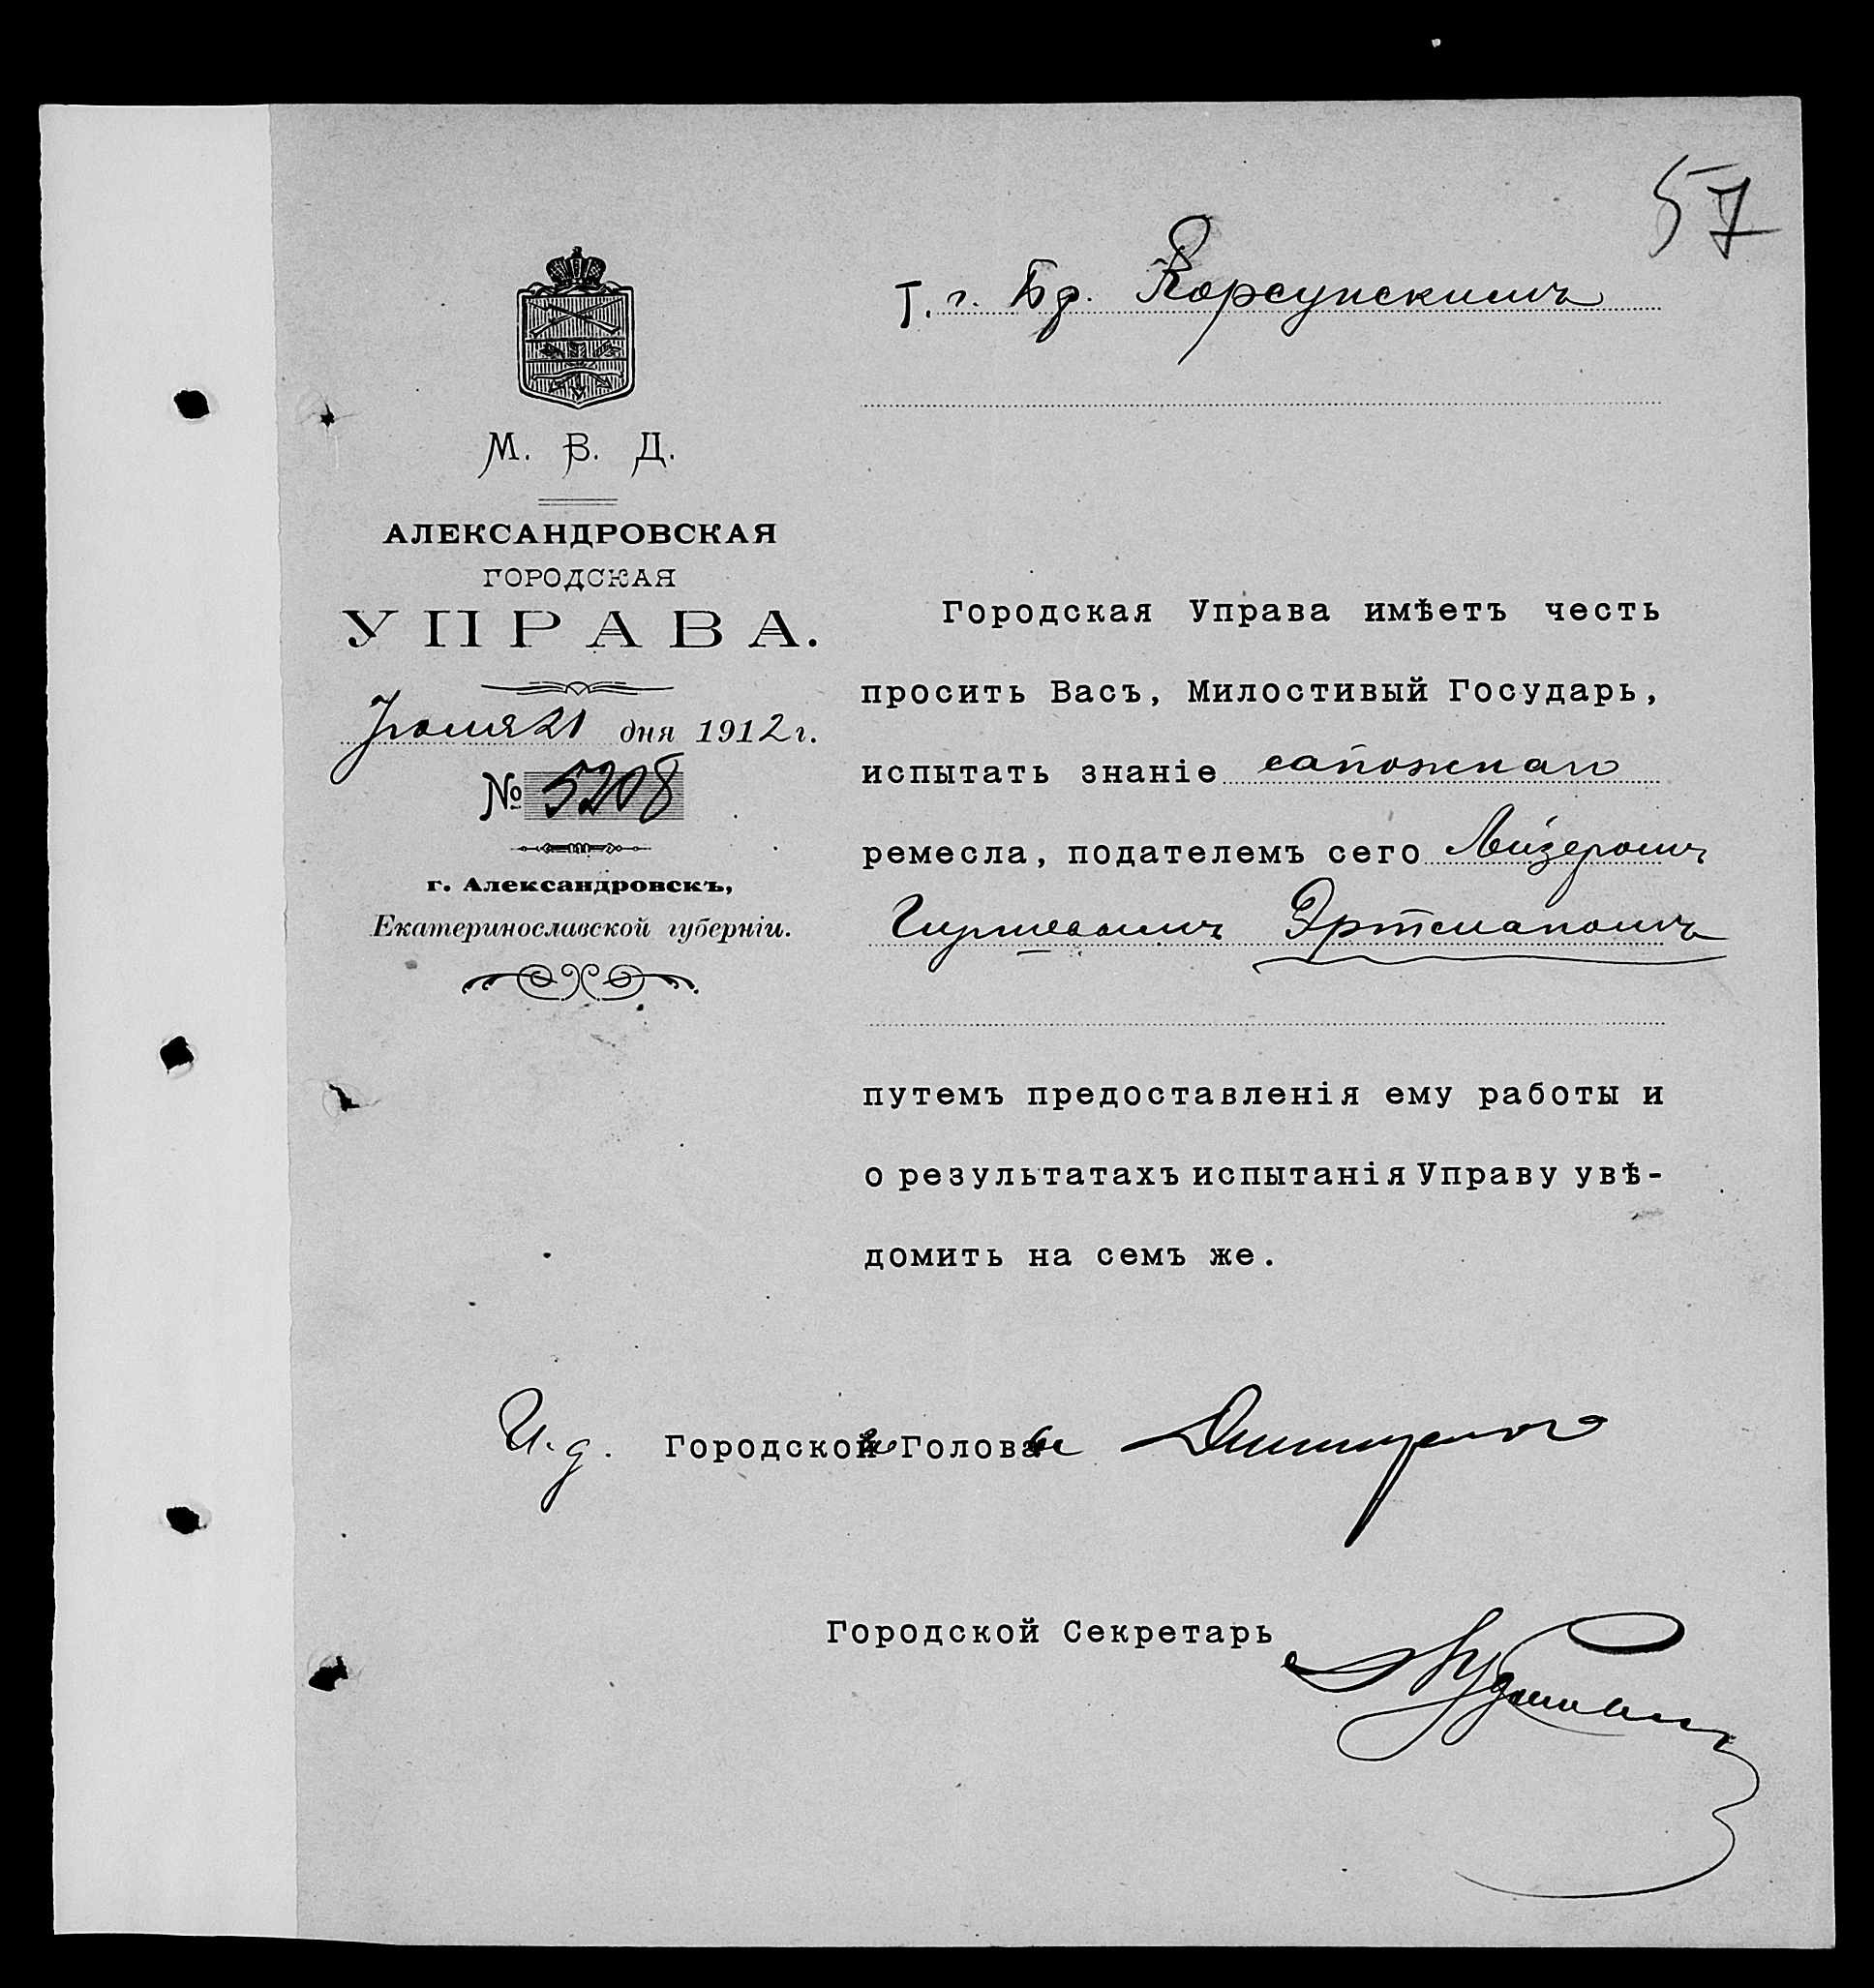 57
Г. г. Бр. Корсунскимъ
М. В. Д.
АЛЕКСАНДРОВСКАЯ
ГОРОДСКАЯ
УПРАВА.
21 дня 1912 г.
№ 5208
г. Александровскъ,
Екатеринославской губерніи.
Городская Управа имѣетъ честь
просить Васъ, Милостивый Государь,
испытать знаніе сапожнаго
ремесла, подателемъ сего Лейзеромъ
Гиршевымъ Эртманомъ
путемъ предоставленія ему работы и
о результатахъ испытанія Управу увѣ-
домить на семъ же.
И. д. Городского Головы
Городской Секретарь